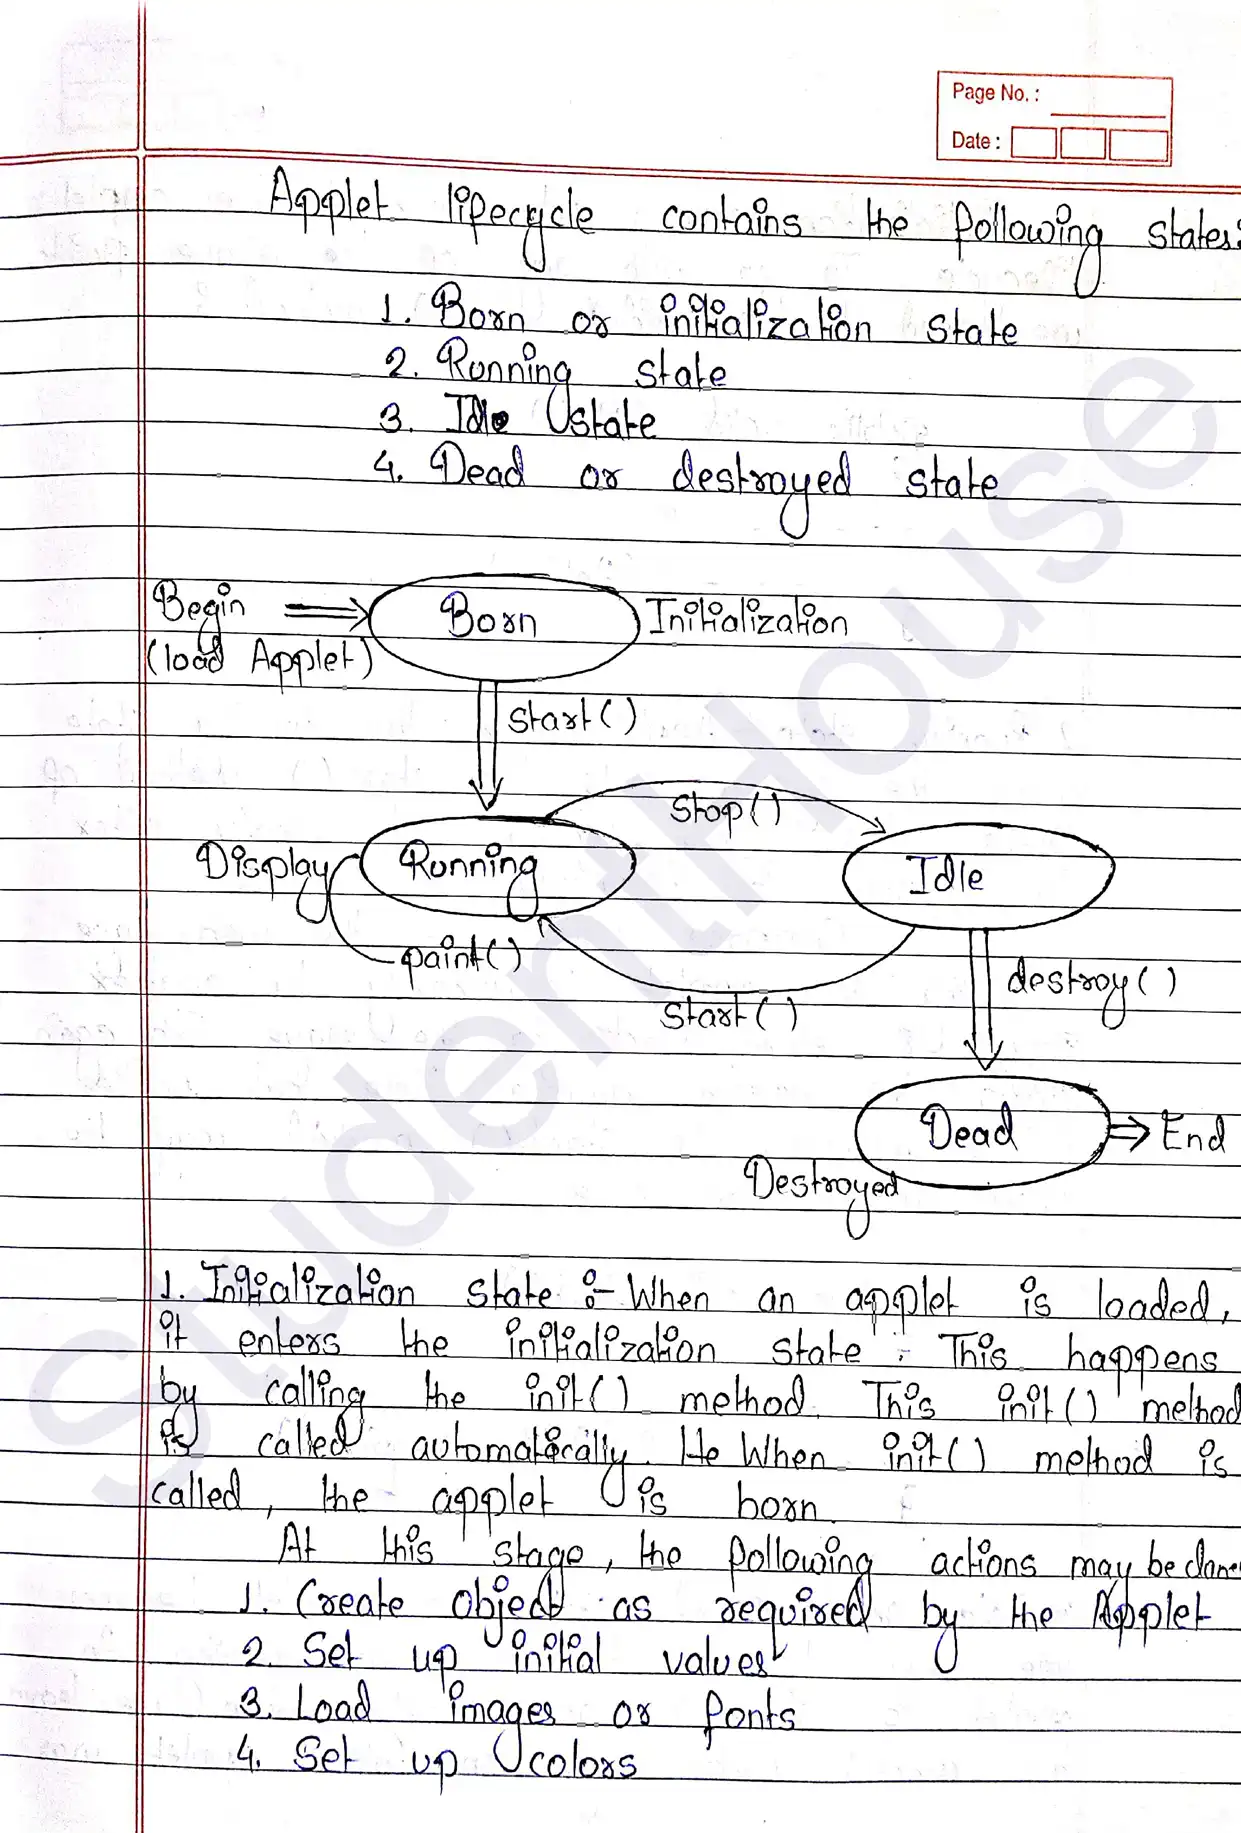 Page No. :
Date :
Applet lifecycle contains the following states:
1. Born or initialization state
2. Running state
3. Idle state
4. Dead or destroyed state
Begin
(load Applet)
Born
Initialization
start()
stop()
Display
Running
Idle
paint()
start()
destroy()
Dead
End
Destroyed
1. Initialization state :- When an applet is loaded,
it enters the initialization state. This happens
by calling the init() method. This init() method
is called automatically. He When init() method is
called, the applet is born.
At this stage, the following actions may be done
1. Create object as required by the Applet
2. Set up initial values
3. Load images or fonts
4. Set up colors
StudentHouse